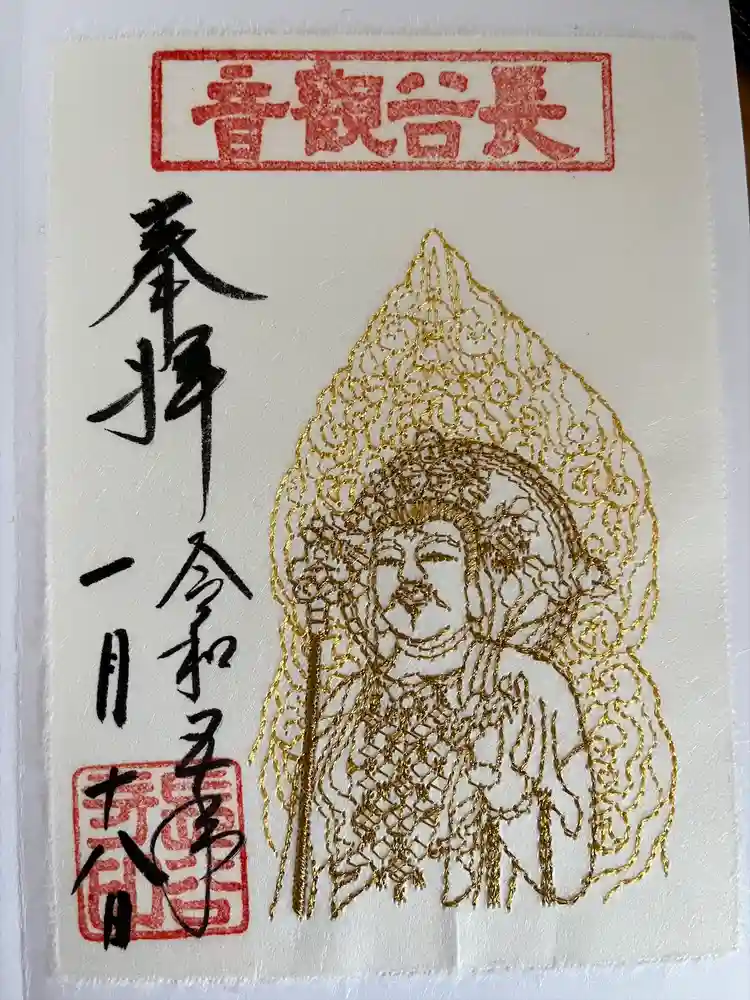 長谷観音
奉拝
令和五年
一月十八日
長谷寺印